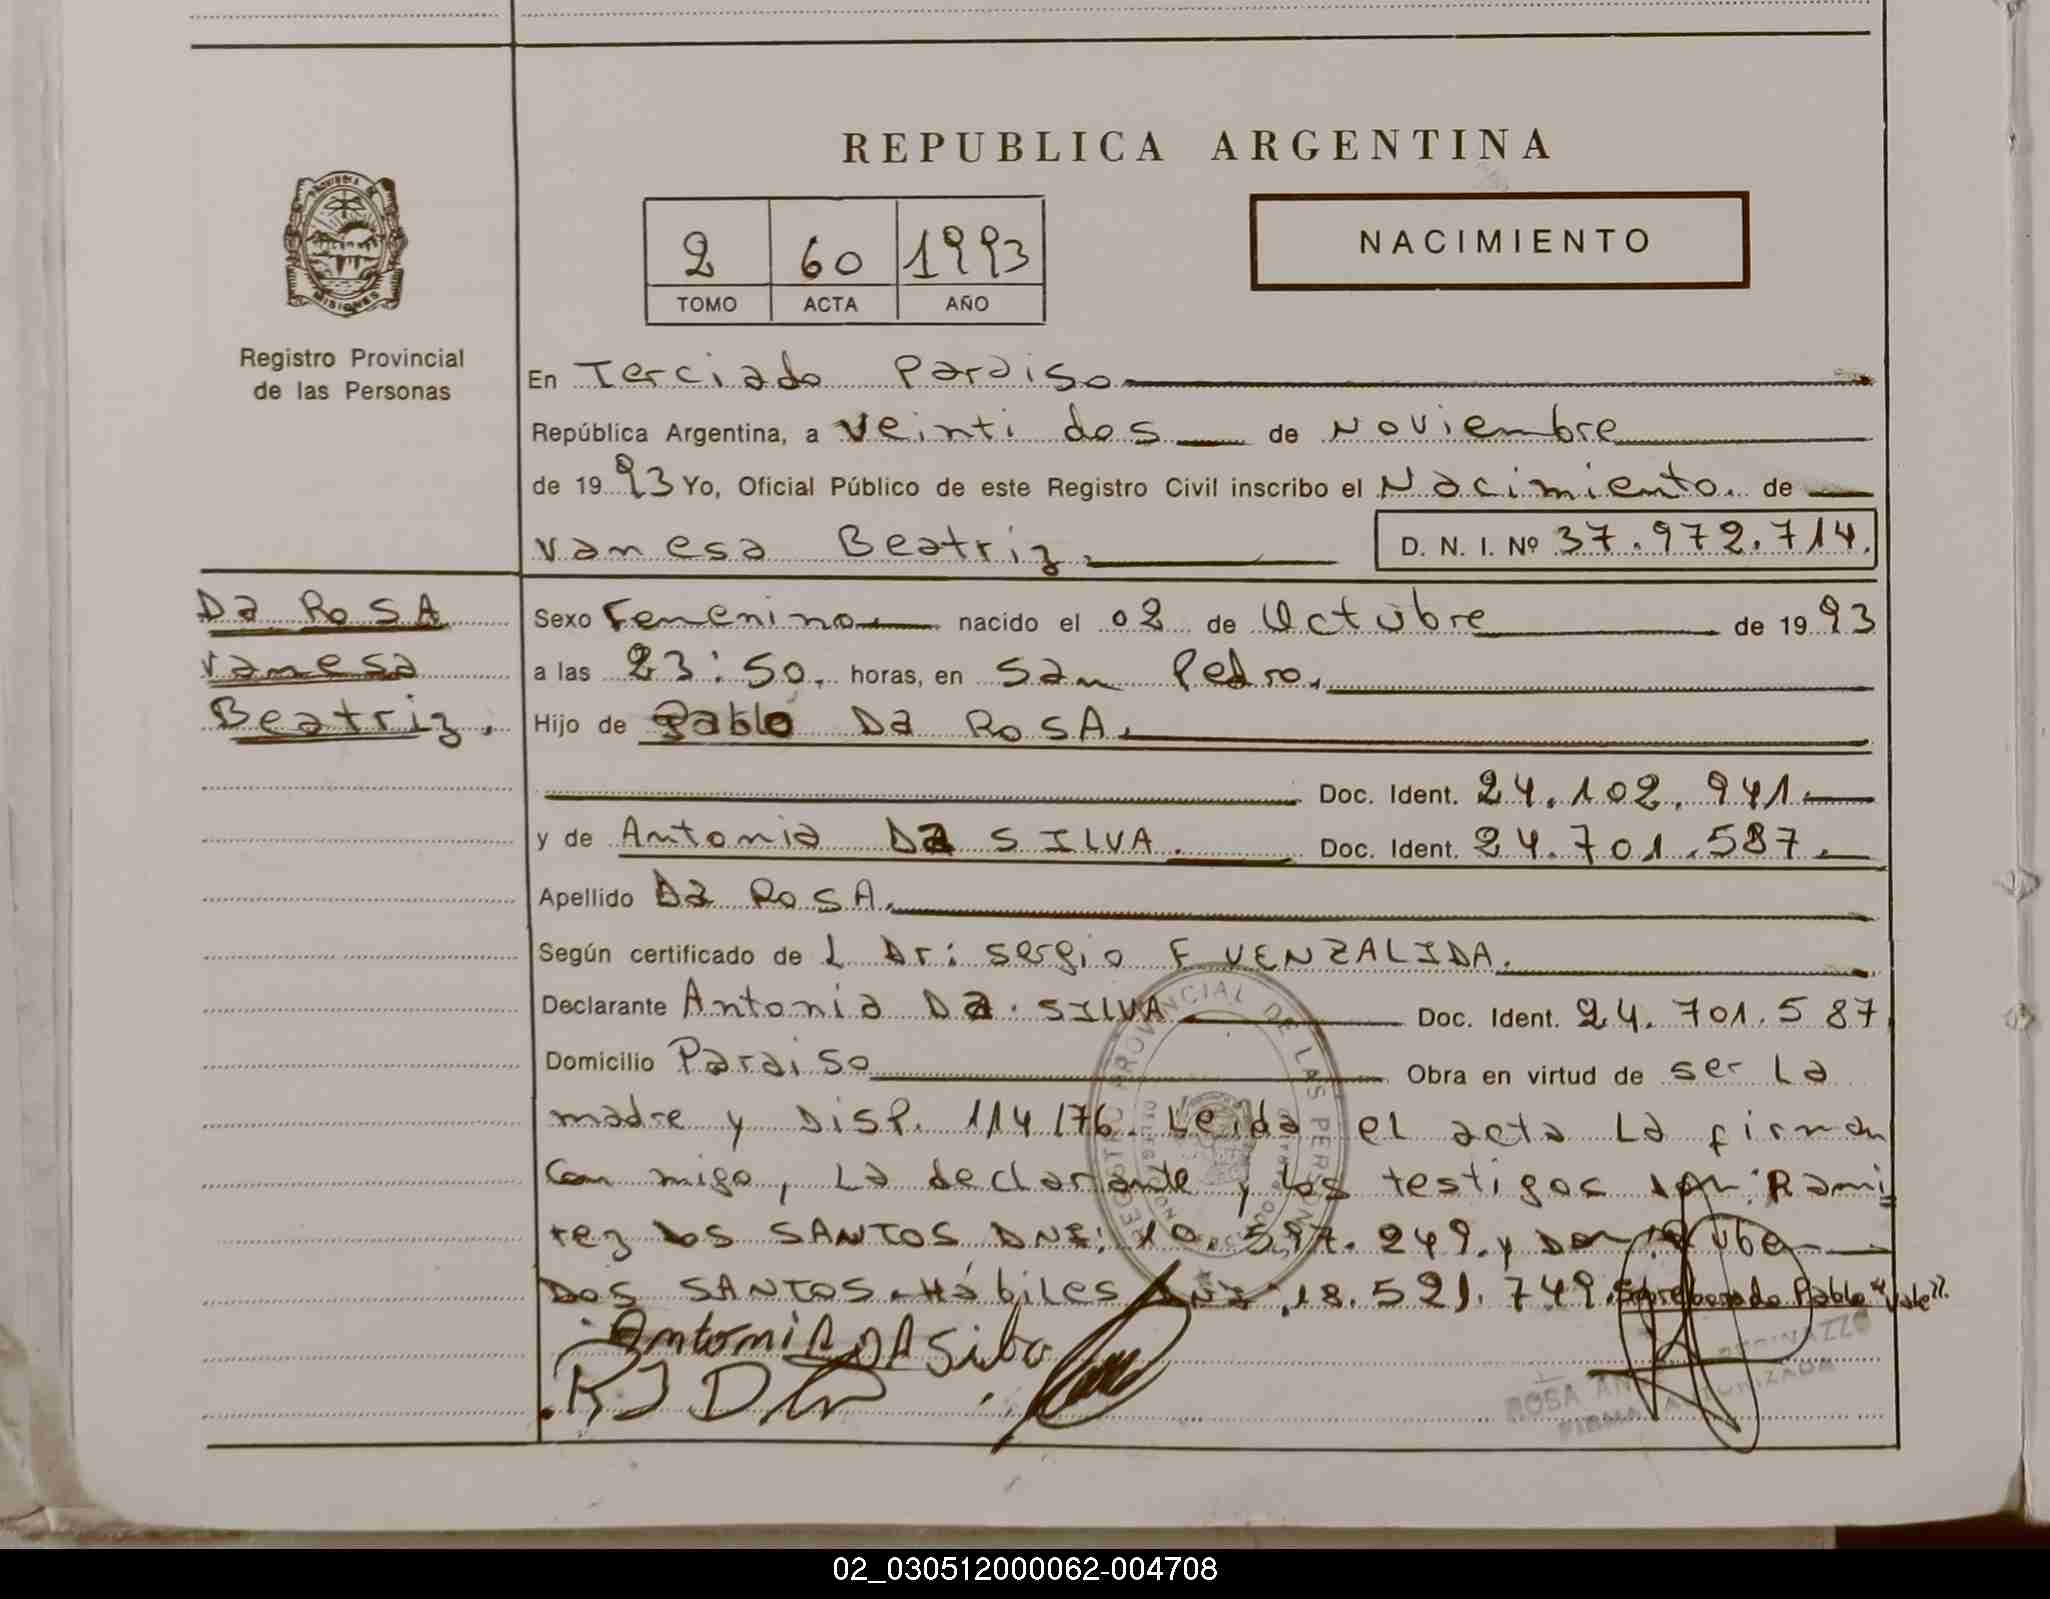 REPUBLICA ARGENTINA
2 60 1993
TOMO ACTA AÑO
NACIMIENTO
MISIONES
Registro Provincial
de las Personas
En Terciado Paraiso
República Argentina, a veinti dos de Noviembre
de 1993 Yo, Oficial Público de este Registro Civil inscribo el Nacimiento. de
vanesa Beatriz. D. N. I. Nº 37.972.714.
Da RoSA
vanesa
Beatriz.
Sexo Femenino nacido el 02 de Octubre de 1993
a las 23:50. horas, en San Pedro.
Hijo de Pablo Da RoSA.
Doc. Ident. 24.102.941.
y de Antonia Da SILVA. Doc. Ident. 24.701.587.
Apellido Da RoSA.
Según certificado de L Dr: Sergio FUENZALIDA.
Declarante Antonia Da SILVA Doc. Ident. 24.701.587
Domicilio Paraiso Obra en virtud de ser La
madre y Disp. 114/76. Leida el acta La firman
Con migo, La declarante y los testigos Don: Rami
rez dos SANTOS DNI: 10.597.249. y Don
Dos SANTOS. Hábiles DNI: 18.521.749. Sobreborrado Pablo "Vale".
REGISTRO PROVINCIAL DE LAS PERSONAS
Antonia DA Silva
ROSA
FIRMA AUTORIZADA
02_030512000062-004708